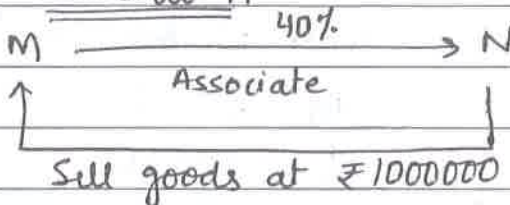 40%
M N
Associate
Sell goods at ₹1000000